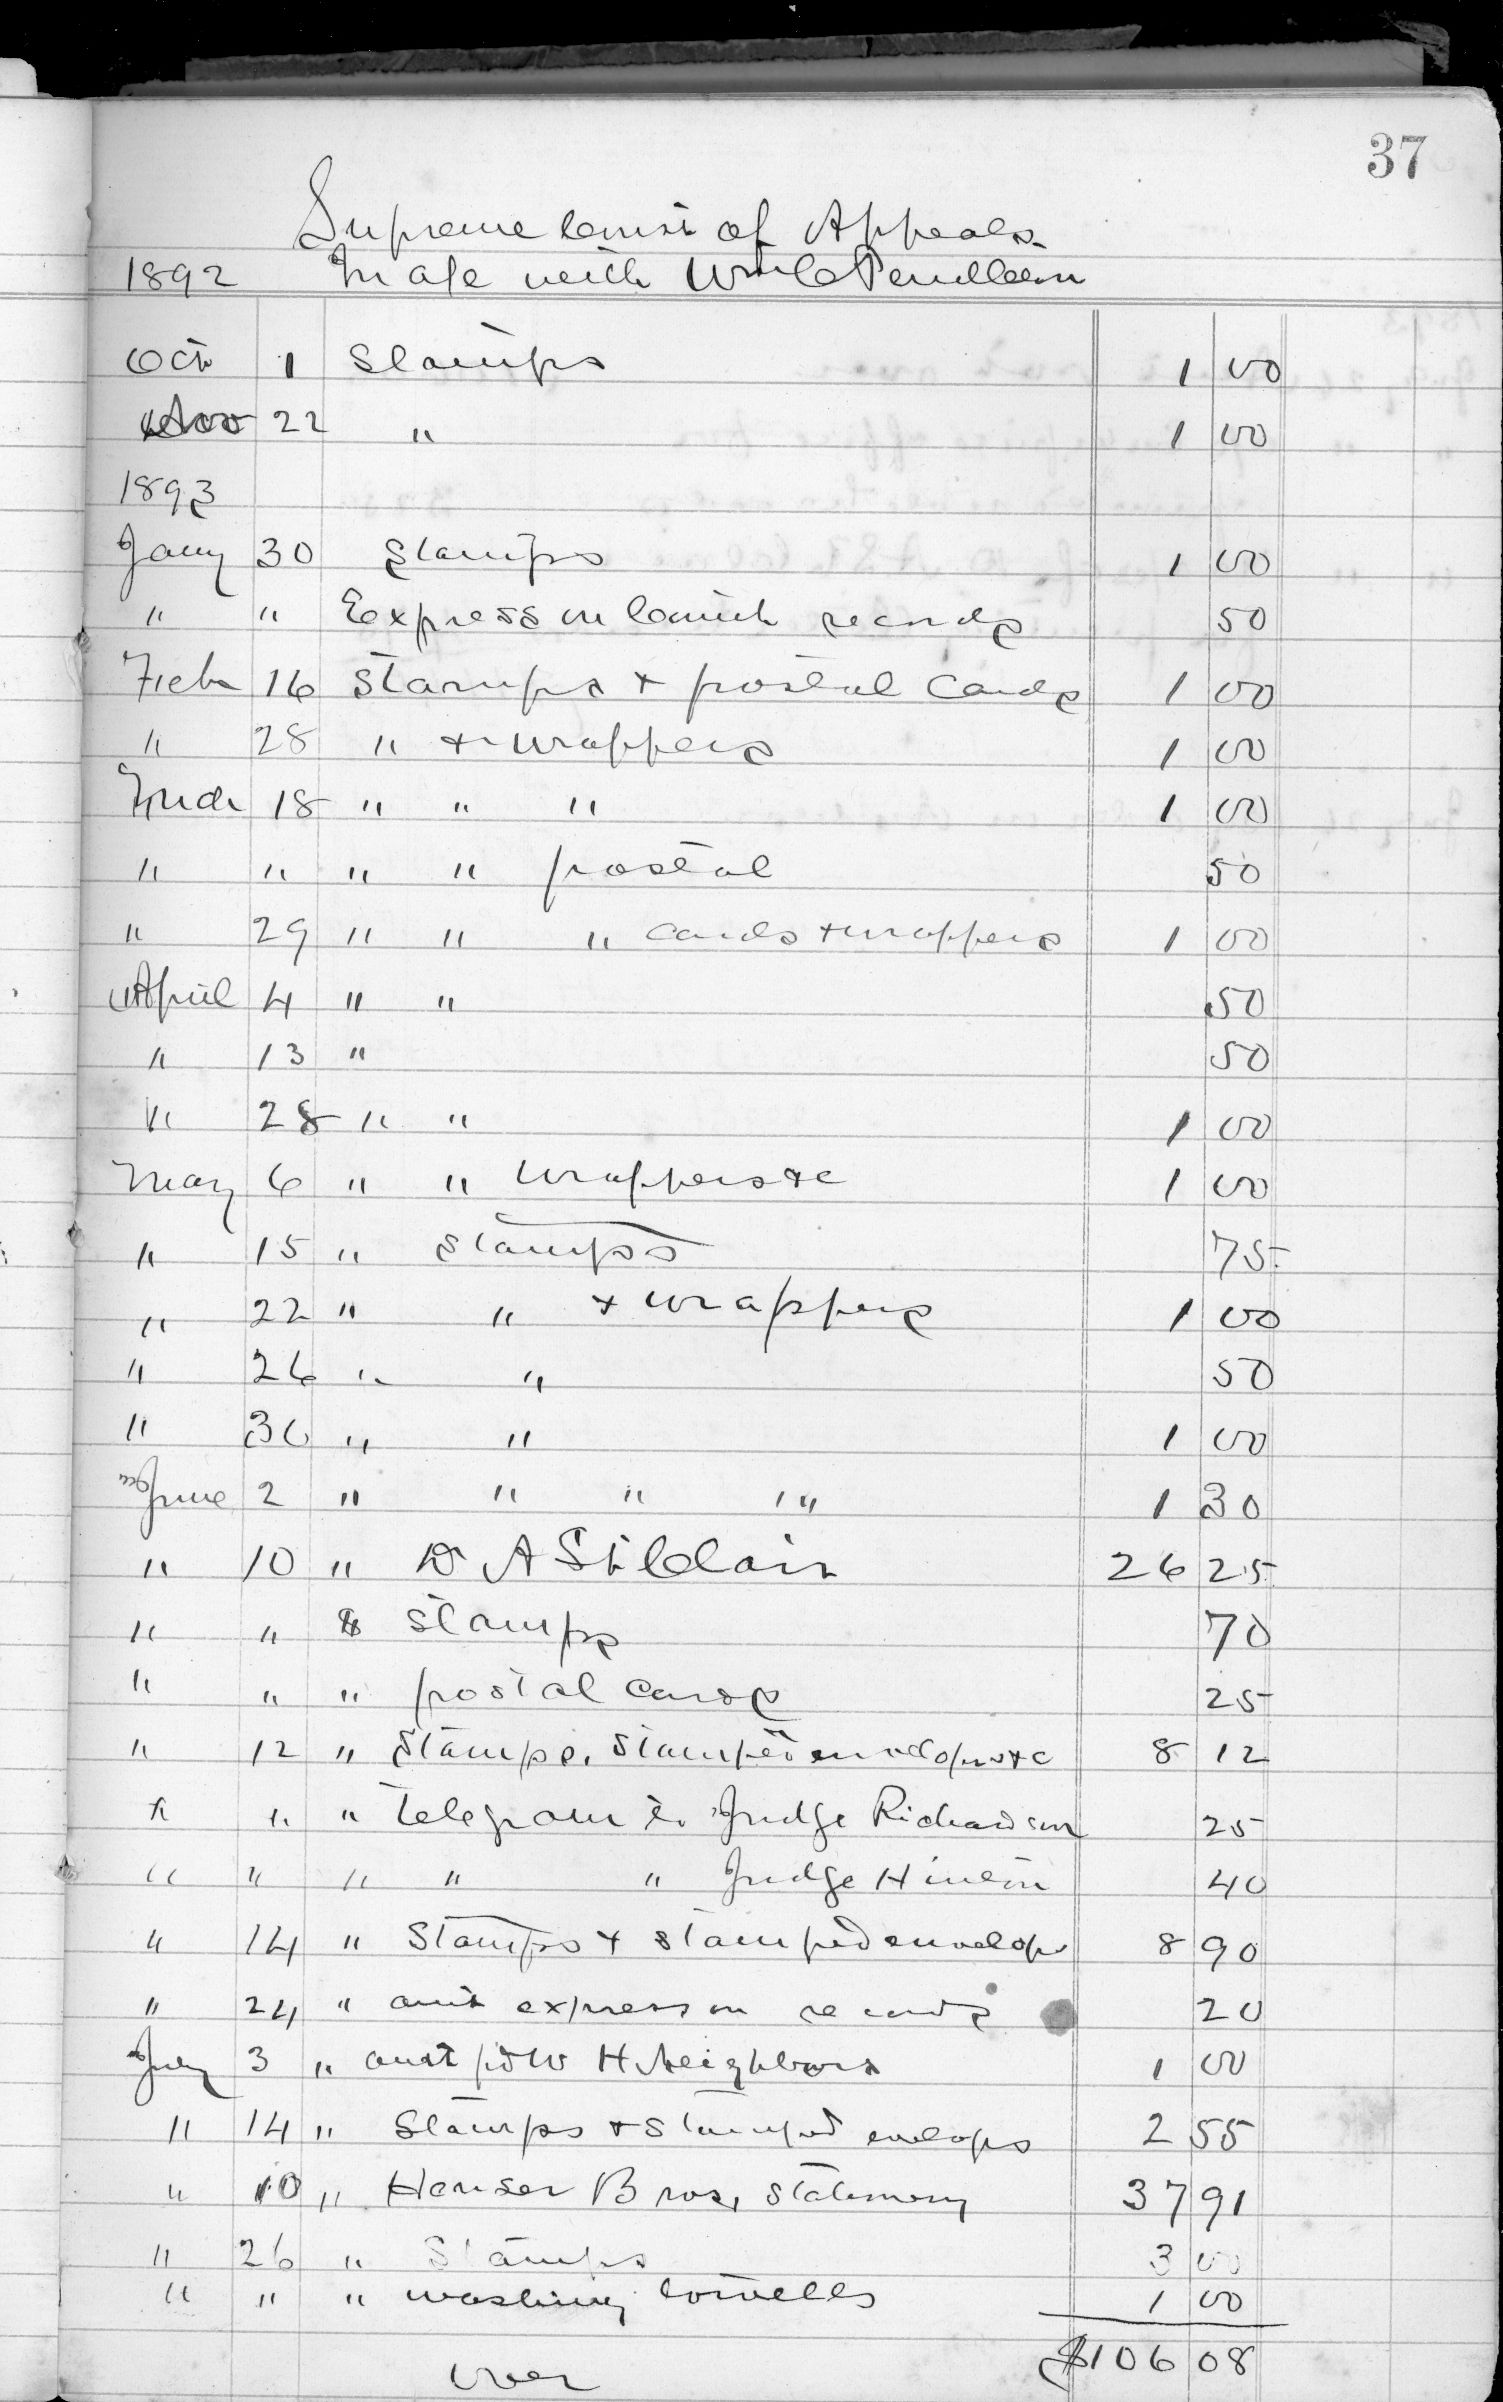 37
Supreme Court of Appeals
1892 In a/c with Wm C Pendleton
Oct 1 Stamps 1 00
Nov 22 " 1 00
1893
Jany 30 Stamps 1 00
" " Express on Court records 50
Feb 16 Stamps + postal Cards 1 00
" 28 " + wrappers 1 00
Mch 18 " " " 1 00
" " " " postal 50
" 29 " " " cards + wrappers 1 00
April 4 " " 50
" 13 " 50
" 28 " " 1 00
May 6 " " wrappers &c 1 00
" 15 " Stamps 75
" 22 " " + wrappers 1 00
" 26 " " 50
" 30 " " 1 00
June 2 " " " " 1 30
" 10 " D A St Clair 26 25
" " " Stamps 70
" " " postal cards 25
" 12 " Stamps, Stamped envelopes &c 8 12
" " " Telegram to Judge Richardson 25
" " " " " Judge Hinton 40
" 14 " Stamps + stamped envelops 8 90
" 24 " amt express on records 20
July 3 " amt pd W H Neighbors 1 00
" 14 " Stamps + Stamped envelops 2 55
" 10 " Hauser Bros, Stationery 37 91
" 26 " Stamps 3 00
" " " washing towells 1 00
over $106 08